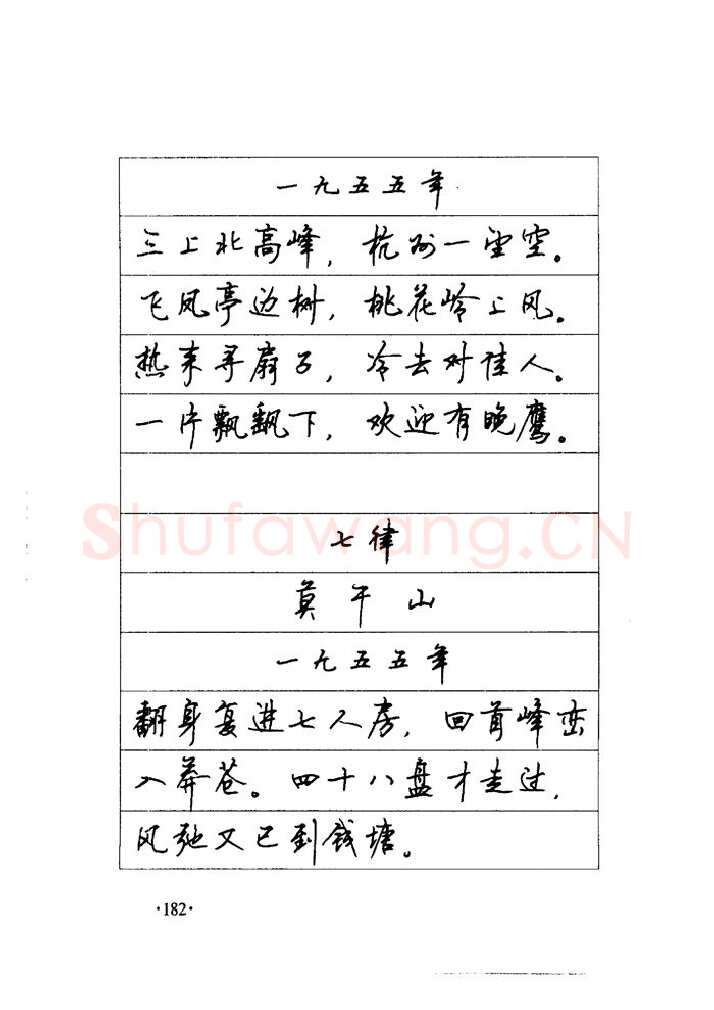 一九五五年
三上北高峰，杭州一望空。
飞凤亭边树，桃花岭上风。
热来寻扇子，冷去对佳人。
一片飘飖下，欢迎有晚鹰。
Shufawang.CN
七律
莫干山
一九五五年
翻身复进七人房，回首峰峦
入莽苍。四十八盘才走过，
风驰又已到钱塘。
·182·